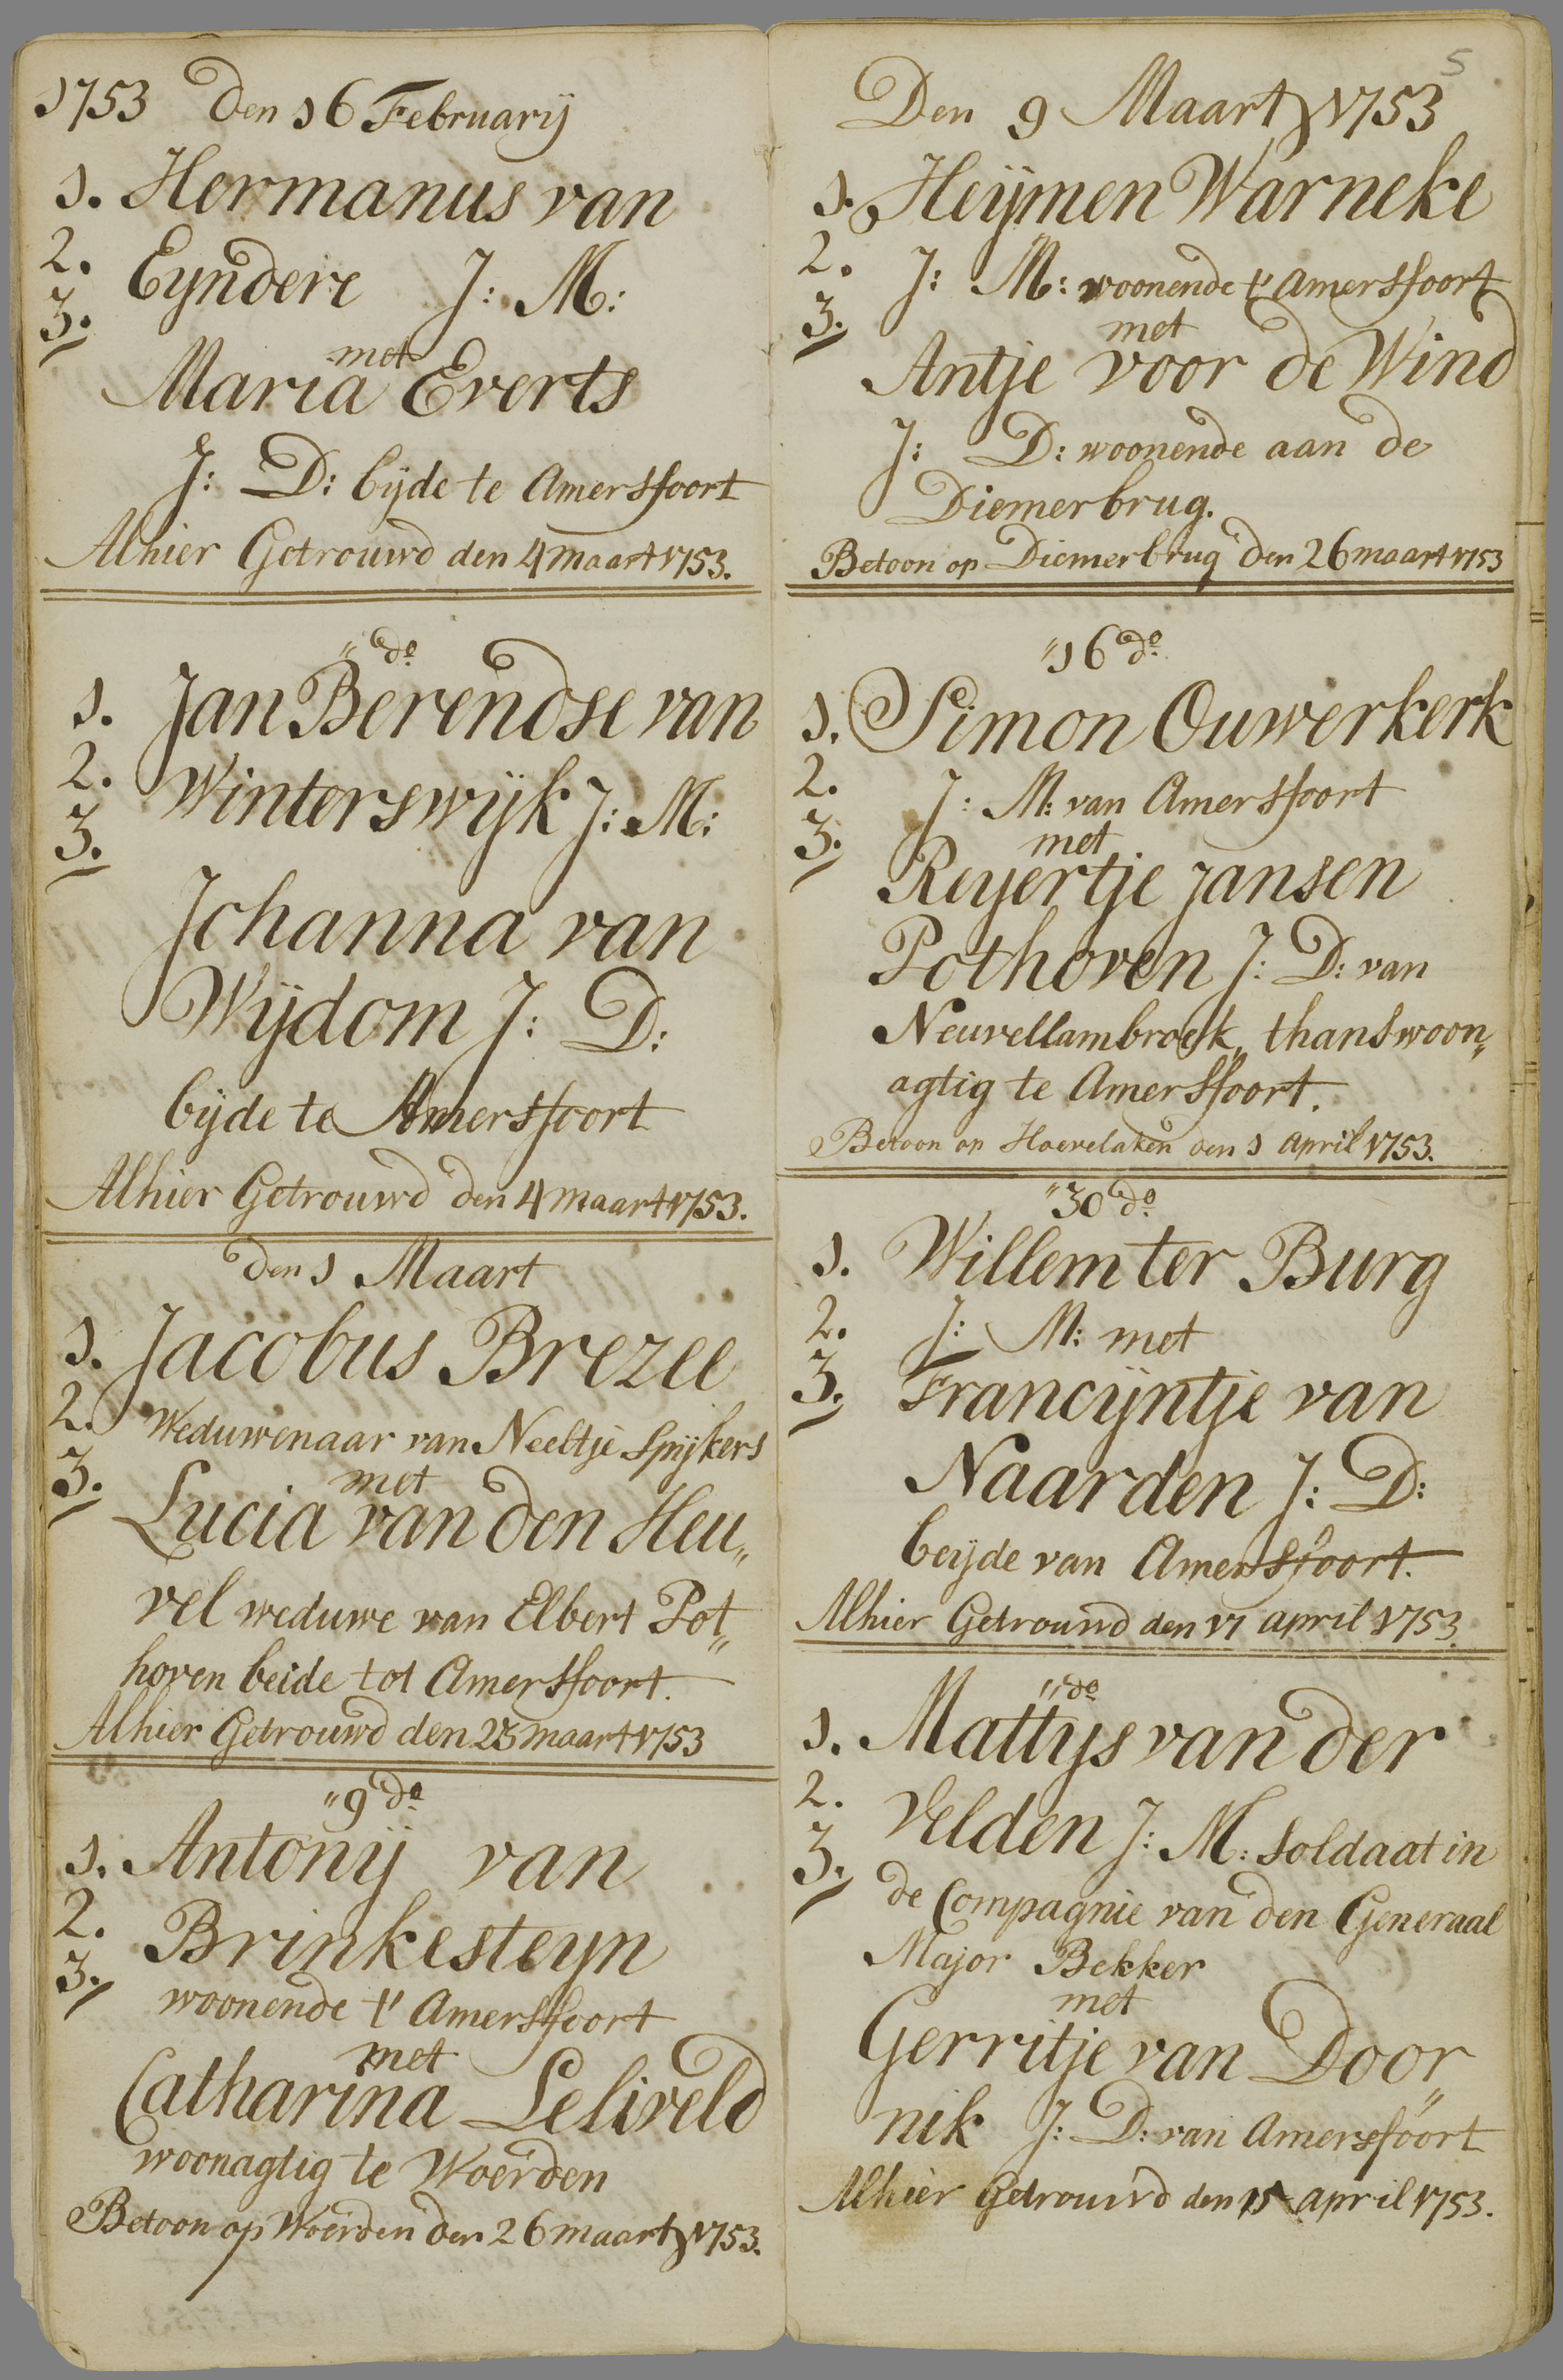 1753 Den 16 Februarij
1. Hermanus van
2. Eyndere J: M:
3.
met
Maria Everts
J: D: bijde te Amersfoort
Alhier Getrouwd den 4 maart 1753.
" do
1. Jan Berendse van
2. Winterswijk J: M:
3.
Johanna van
Wijdom J: D:
bijde te Amersfoort
Alhier Getrouwd den 4 maart 1753.
den 1 Maart
1. Jacobus Brezee
2. Weduwenaar van Neeltje Spijkers
3. met
Lucia van den Heu„
vel weduwe van Elbert Pot„
hoven beide tot Amersfoort.
Alhier Getrouwd den 25 maart 1753
" 9 do
1. Antonij van
2. Brinkesteyn
3. woonende t' Amersfoort
met
Catharina Leliveld
woonagtig te Woerden
Betoon op Woerden den 26 maart 1753.
5
Den 9 Maart 1753
1. Heijmen Warneke
2. J: M: woonende t' Amersfoort
3. met
Antje voor de Wind
J: D: woonende aan de
Diemerbrug.
Betoon op Diemerbrug den 26 maart 1753
" 16 do
1. Simon Ouwerkerk
2. J: M: van Amersfoort
3. met
Reyertje Jansen
Pothoven J: D: van
Neuvellambroek, thans woon„
agtig te Amersfoort.
Betoon op Hoevelaken den 1 april 1753.
" 30 do
1. Willem ter Burg
2. J: M: met
3. Francijntje van
Naarden J: D:
beijde van Amersfoort.
Alhier Getrouwd den 17 april 1753
" do
1. Mattys van der
2. Velden J: M: Soldaat in
3. de Compagnie van den Generaal
Major Bekker
met
Gerritje van Door„
nik J: D: van Amersfoort
Alhier Getrouwd den 15 april 1753.